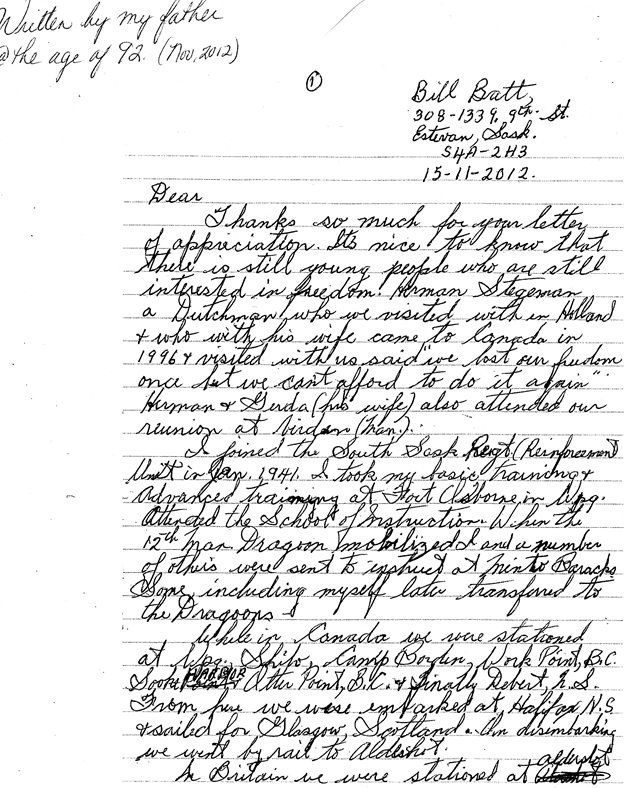 Written by my father
@ the age of 92. (Nov, 2012)
1
Bill Batt,
308-1339, 9th St.
Estevan, Sask.
S4A-2H3
15-11-2012.
Dear
Thanks so much for your letter
of appreciation. Its nice to know that
there is still young people who are still
interested in freedom. Herman Stegeman
a Dutchman who we visited with in Holland
& who with his wife came to Canada in
1996 & visited with us said "we lost our freedom
once but we cant afford to do it again".
Herman & Gerda (his wife) also attended our
reunion at Virden (Man.).
I joined the South Sask Regt (Reinforcement
Unit in Jan. 1941. I took my basic training &
advanced training at Fort Osborne, in Wpg.
Attended the School of Instruction. When the
12th Man. Dragoon mobilized I and a number
of others were sent to instruct at Minto Baracks
Some, including myself later transferred to
the Dragoons
While in Canada we were stationed
at Wpg., Shilo, Camp Borden, Work Point, B.C.
Sooke HARBOR Otter Point, B.C. & finally Debert, N.S.
From here we were embarked at Halifax N.S.
& sailed for Glasgow, Scotland. On disembarking
we went by rail to Aldeshot.
In Britain we were stationed at aldershot